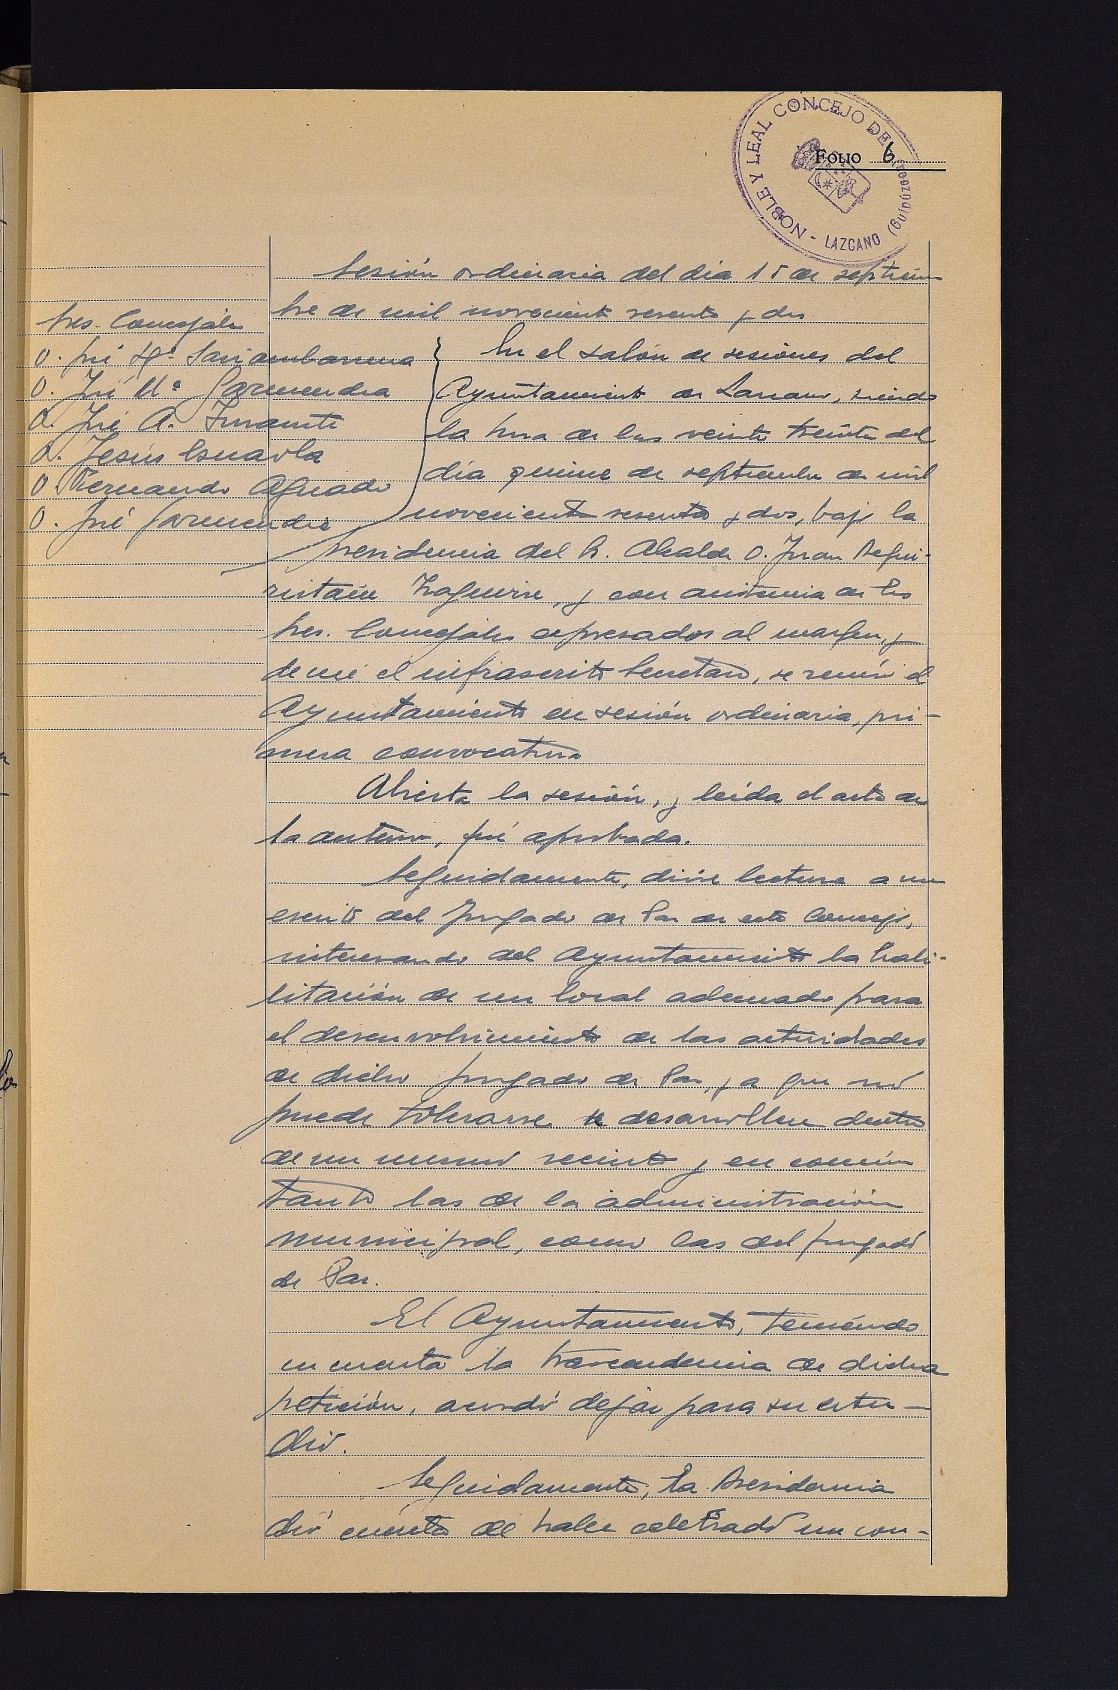 NOBLE Y LEAL CONCEJO DE LAZCANO (Guipúzcoa)
FOLIO 6
Sesión ordinaria del dia 15 de septiem
bre de mil novecientos sesenta y dos
Sres. Concejales
D. José Mª
D. José Mª Garmendia
D. José A. Insausti
D. Jesús Esnaola
D. Fernando Aguado
D. José Garmendia
En el salón de sesiones del
Ayuntamiento de Lazcano, siendo
la hora de las veinte treinta del
día quince de septiembre de mil
novecientos sesenta y dos, bajo la
presidencia del Sr. Alcalde D. Juan Begui-
ristain, y con asistencia de los
Sres. Concejales expresados al margen, y
de mi el infrascrito Secretario, se reunió el
Ayuntamiento en sesión ordinaria, pri-
mera convocatoria
Abierta la sesión, y leída el acta de
la anterior, fué aprobada.
Seguidamente, dióse lectura a un
escrito del Juzgado de Paz de este Concejo,
interesando del Ayuntamiento la habi-
litación de un local adecuado para
el desenvolvimiento de las actividades
de dicho Juzgado de Paz, ya que no
puede tolerarse se desarrollen dentro
de un mismo recinto y en común
tanto las de la administración
municipal, como las del Juzgado
de Paz.
El Ayuntamiento, teniendo
en cuenta la trascendencia de dicha
petición, acordó dejar para su estu-
dio.
Seguidamente, la Presidencia
dió cuenta de haber celebrado un con-